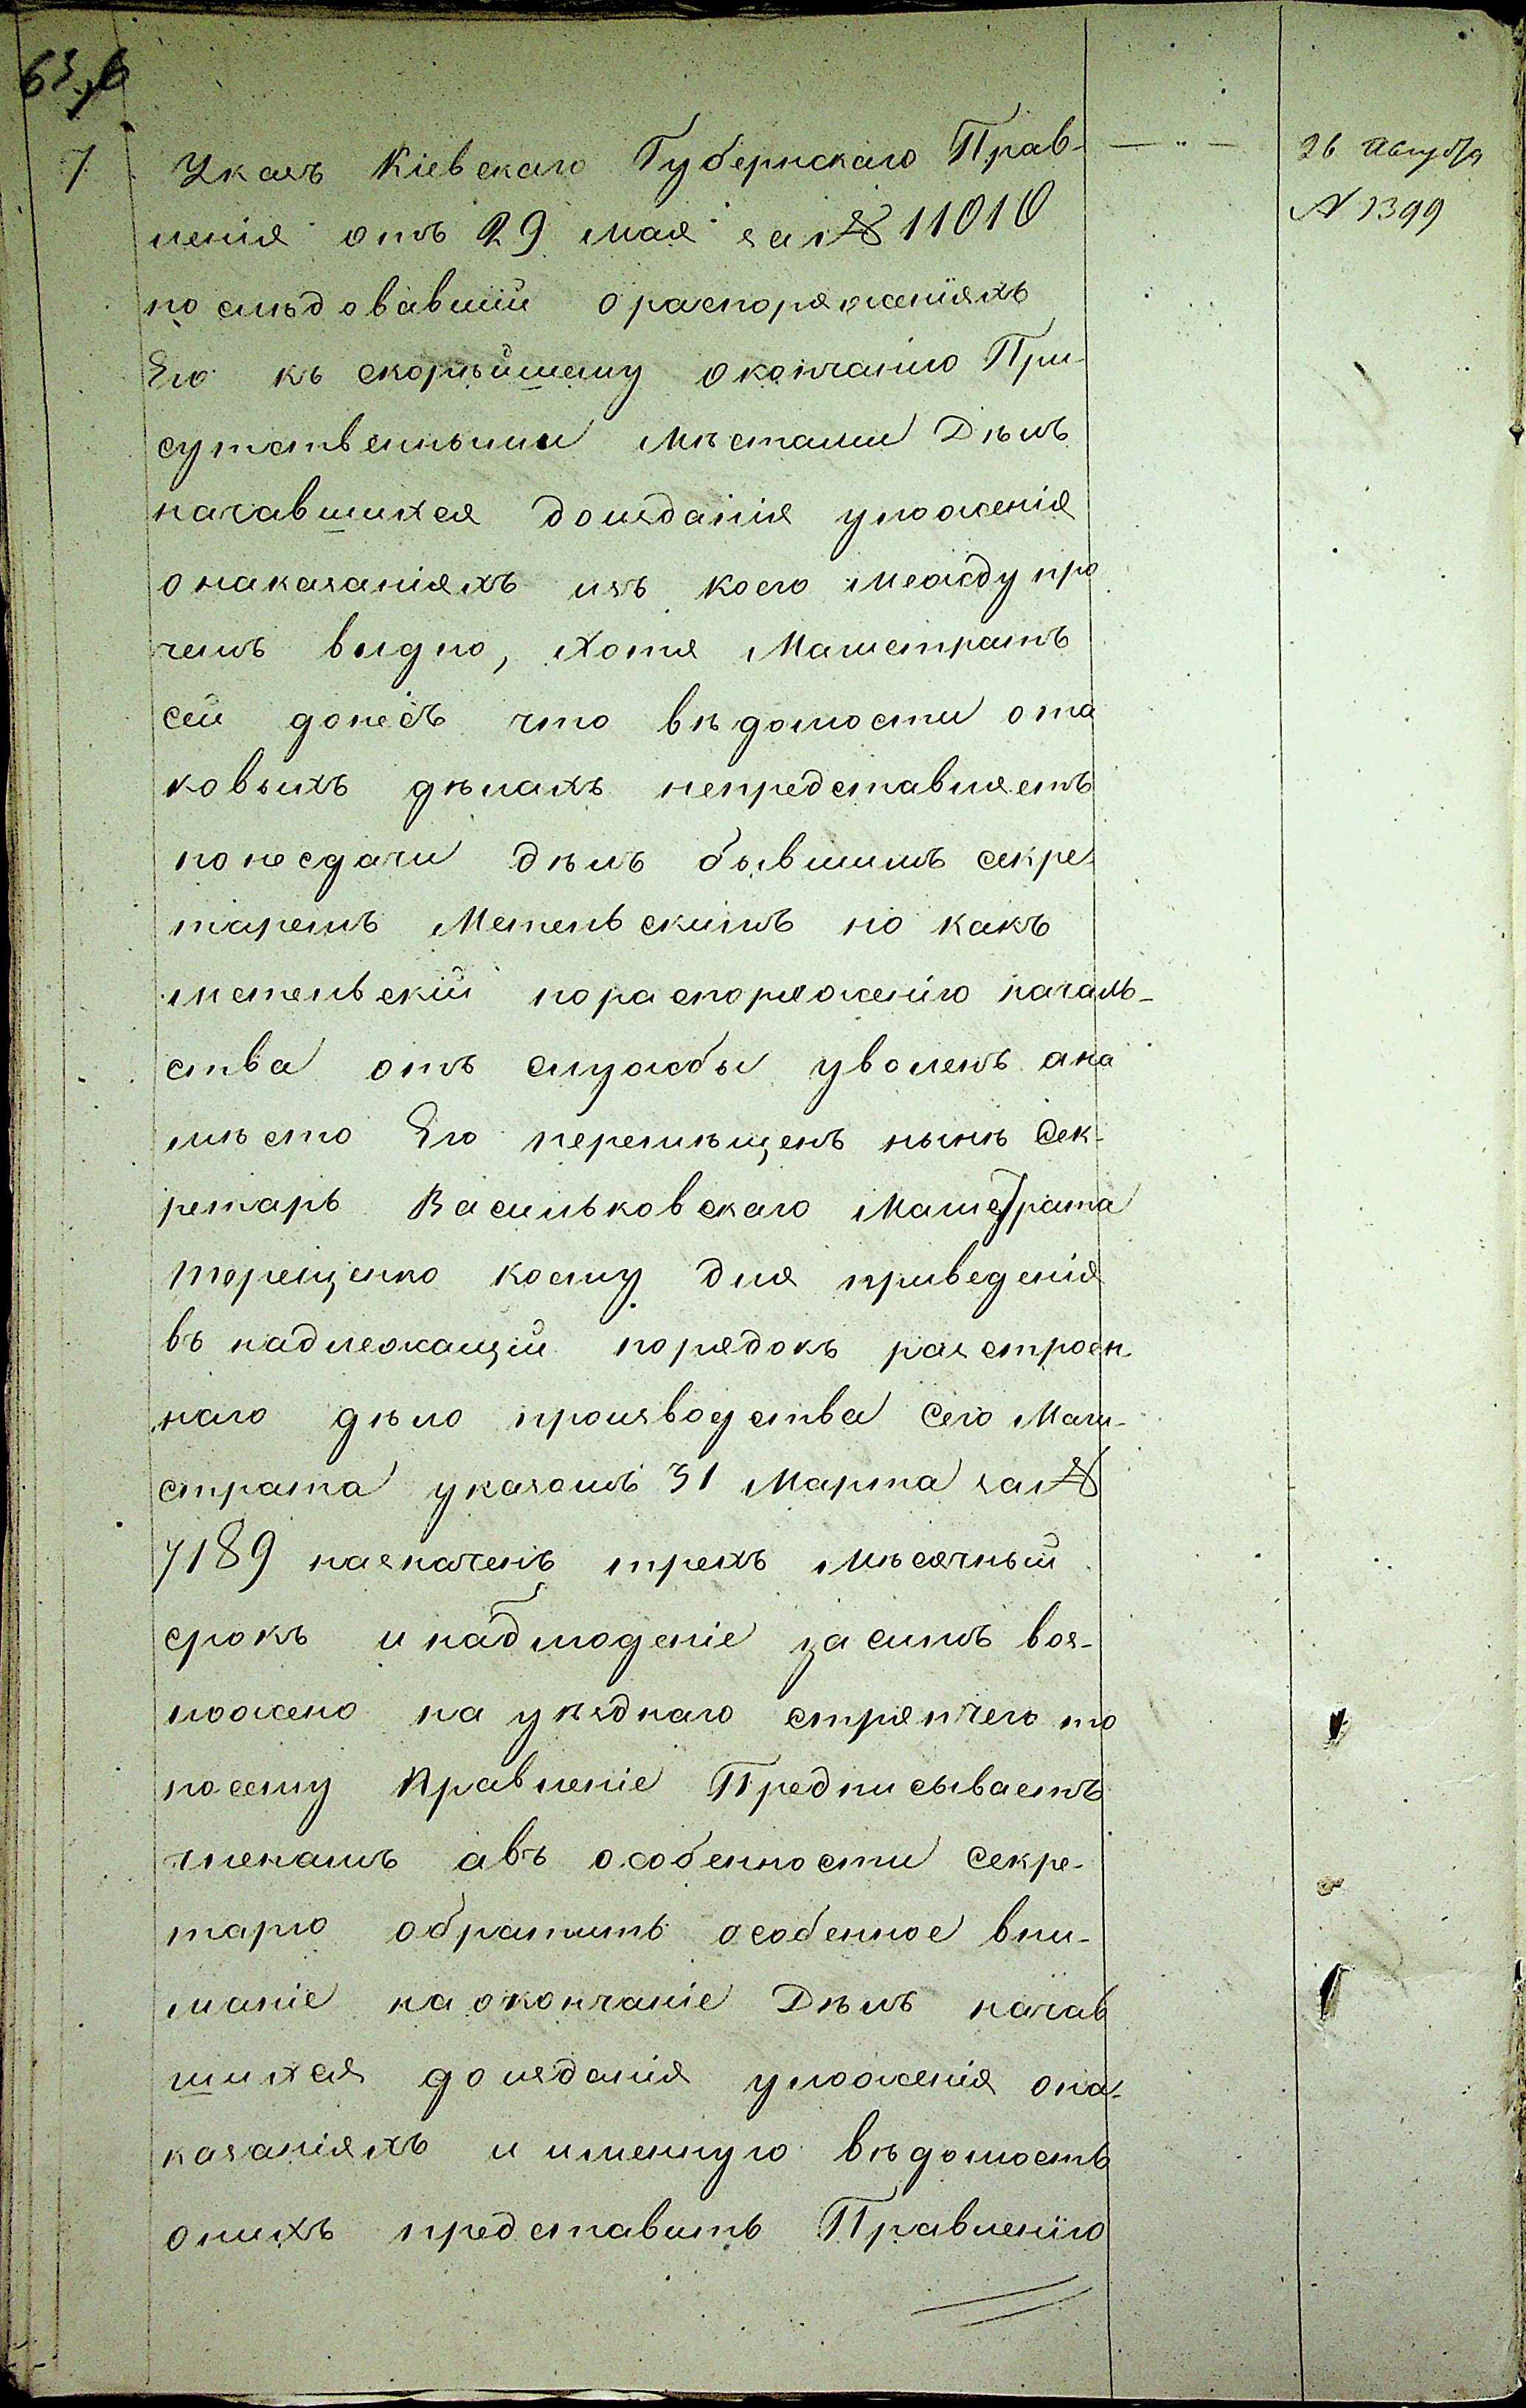 63,б
7
Указъ Кіевскаго Губернскаго Прав-
ленія отъ 29 мая за № 11010
последовавшій о распоряженіяхъ
Его къ скорѣйшему окончанію При-
сутственными мѣстами Дѣлъ
начавшихся доизданія уложенія
онаказаніяхъ изъ коего между про
чемъ видно, хотя Магистратъ
сей донесъ что вѣдомости ота
ковыхъ дѣлахъ непредставляетъ
понесдачи дѣлъ бывшимъ секре-
таремъ Метельскимъ но какъ
метельскій пораспоряженію началь-
ства отъ службы уволенъ ана
мѣсто Его перемѣщенъ нынѣ Сек-
ретарь Васильковскаго Магистрата
Терещенко коему для приведенія
въ надлежащій порядокъ разстроен-
наго дѣло производства Сего Маги-
страта указомъ 31 Марта за №
7189 назначенъ трехъ мѣсячный
срокъ и наблюденіе за симъ воз-
ложено на уѣзднаго стряпчего то
посему Правленіе Предписываетъ
членамъ авъ особенности Секре-
тарю обратить особенное вни-
маніе на окончаніе Дѣлъ начав
шихся доизданія уложенія она-
казаніяхъ и именную вѣдомость
онихъ представить Правленію
— " —
26 Августа
№ 1399